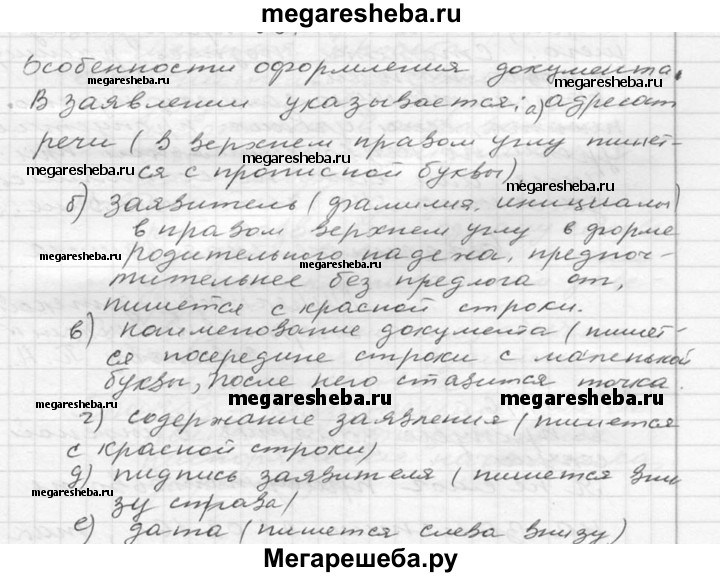 megaresheba.ru
Особенности оформления документа.
megaresheba.ru megaresheba.ru
В заявлении указывается: а) адресат
речи (в верхнем правом углу пишет-
megaresheba.ru
megaresheba.ru ся с прописной буквы)
б) заявитель (фамилия, инициалы)
megaresheba.ru
в правом верхнем углу в форме
megaresheba.ru родительного падежа, предпоч-
тительнее без предлога от,
пишется с красной строки.
в) наименование документа (пишет-
ся посередине строки с маленькой
буквы, после него ставится точка.
megaresheba.ru megaresheba.ru megaresheba.ru
г) содержание заявления (пишется
с красной строки)
д) пидпись заявителя (пишется вни
megaresheba.ru зу справа)
е) дата (пишется слева внизу)
Мегарешеба.ру